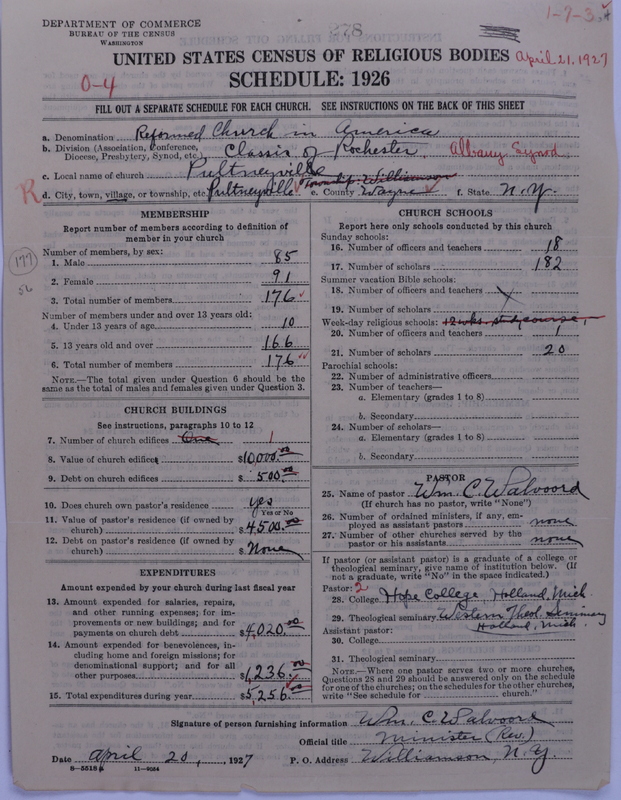 DEPARTMENT OF COMMERCE
BUREAU OF THE CENSUS
WASHINGTON
278
1-7-3
UNITED STATES CENSUS OF RELIGIOUS BODIES
April 21, 1927
0-4
SCHEDULE: 1926
FILL OUT A SEPARATE SCHEDULE FOR EACH CHURCH. SEE INSTRUCTIONS ON THE BACK OF THIS SHEET
a. Denomination Reformed Church in America
b. Division (Association, Conference, Diocese, Presbytery, Synod, etc.) Classis of Rochester Albany Synod
c. Local name of church Pultneyville
R
d. City, town, village, or township, etc. Pultneyville Township Williamson e. County Wayne f. State N.Y.
MEMBERSHIP
Report number of members according to definition of
member in your church
Number of members, by sex:
177
56
1. Male 85
2. Female 91
3. Total number of members 176
Number of members under and over 13 years old:
4. Under 13 years of age 10
5. 13 years old and over 166
6. Total number of members 176
NOTE.—The total given under Question 6 should be the
same as the total of males and females given under Question 3.
CHURCH BUILDINGS
See instructions, paragraphs 10 to 12
7. Number of church edifices One 1
8. Value of church edifices $10,000.00
9. Debt on church edifices $500.00
10. Does church own pastor's residence yes
Yes or No
11. Value of pastor's residence (if owned by
church) $4,500.00
12. Debt on pastor's residence (if owned by
church) $None
EXPENDITURES
Amount expended by your church during last fiscal year
13. Amount expended for salaries, repairs,
and other running expenses; for im-
provements or new buildings; and for
payments on church debt $4,020.00
14. Amount expended for benevolences, in-
cluding home and foreign missions; for
denominational support; and for all
other purposes $1,236.00
15. Total expenditures during year $5,256.00
CHURCH SCHOOLS
Report here only schools conducted by this church
Sunday schools:
16. Number of officers and teachers 18
17. Number of scholars 182
Summer vacation Bible schools:
18. Number of officers and teachers
19. Number of scholars
Week-day religious schools: 12 wks. study course
20. Number of officers and teachers 1
21. Number of scholars 20
Parochial schools:
22. Number of administrative officers
23. Number of teachers—
a. Elementary (grades 1 to 8)
b. Secondary
24. Number of scholars—
a. Elementary (grades 1 to 8)
b. Secondary
PASTOR
25. Name of pastor Wm. C. Walvoord
(If church has no pastor, write "None")
26. Number of ordained ministers, if any, em-
ployed as assistant pastors none
27. Number of other churches served by the
pastor or his assistants none
If pastor (or assistant pastor) is a graduate of a college or
theological seminary, give name of institution below. (If
not a graduate, write "No" in the space indicated.)
Pastor: 2
28. College Hope College, Holland, Mich.
29. Theological seminary Western Theol. Seminary
Assistant pastor: Holland, Mich.
30. College
31. Theological seminary
NOTE.—Where one pastor serves two or more churches,
Questions 28 and 29 should be answered only on the schedule
for one of the churches; on the schedules for the other churches,
write "See schedule for church."
Signature of person furnishing information Wm. C. Walvoord
Official title Minister (Rev.)
Date April 20, 1927 P. O. Address Williamson, N.Y.
8-5518a 11-9024